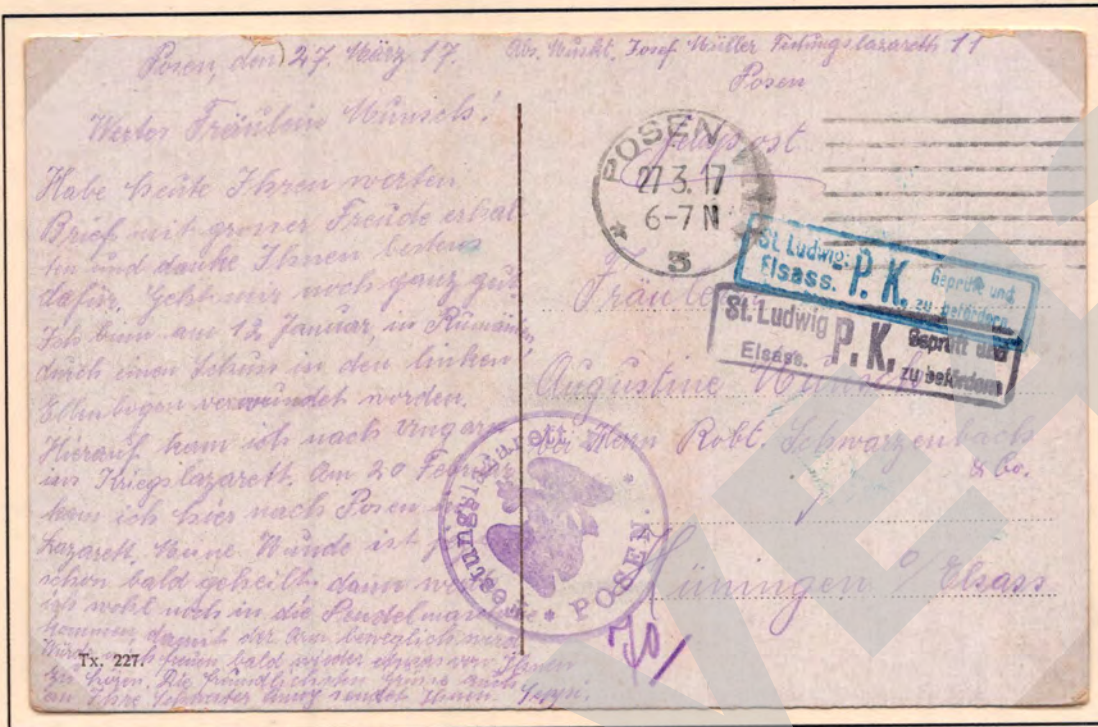 Posen, den 27. März 17.
Abs. Muskt. Josef Müller Festungslazareth 11
Posen
Wertes Fräulein Münsch!
Habe heute Ihren werten
Brief mit grosser Freude erhal-
ten und danke Ihnen bestens
dafür. Geht mir noch ganz gut.
Ich bin am 12 Januar, in Rumänien
durch einen Schuss in den linken
Ellenbogen verwundet worden.
Hierauf kam ich nach Ungarn
ins Kriegslazarett. Am 20 Februar
kam ich hier nach Posen
Lazarett. Meine Wunde ist
schon bald geheilt, dann
ich wohl noch in die
kommen, damit der Arm beweglich wird.
freuen bald wieder etwas von Ihnen
zu hören. Die freundlichsten Grüsse auch
an Ihre Schwester sendet Ihnen
Tx. 227.
Feldpost
POSEN
27.3.17
6-7 N
3
St. Ludwig: P. K. Geprüft und
Elsass. zu befördern
St. Ludwig P. K. Geprüft und
Elsass. zu befördern
Fräulein
Augustine Münsch
bei Herrn Robt. Schwarzenbach
& Co.
Hüningen i/ Elsass
Festungslazarett
* POSEN *